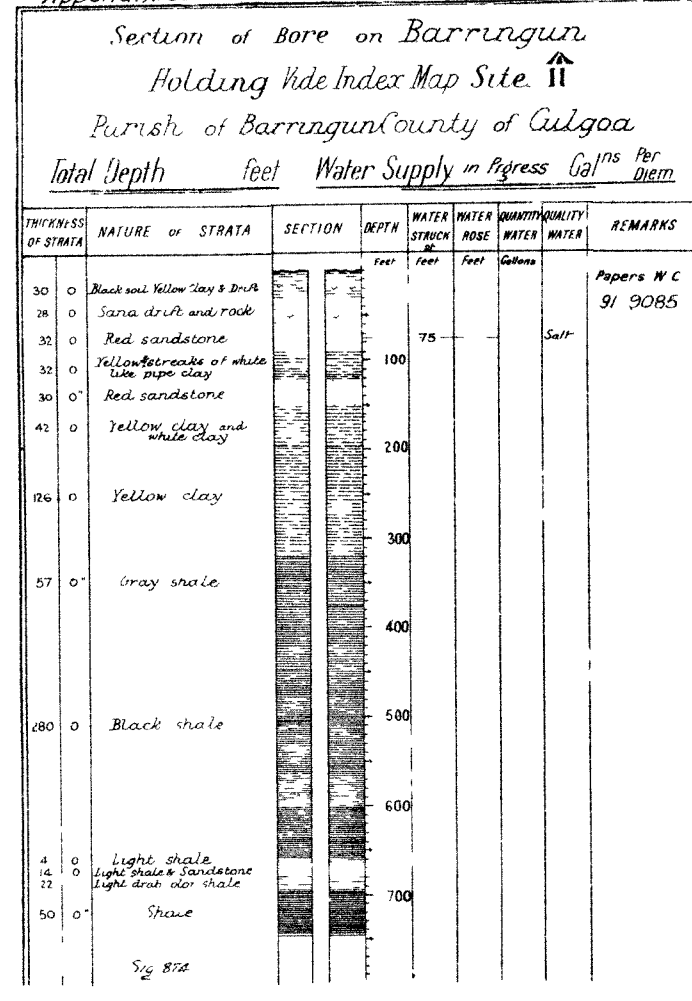 Section of Bore on Barringun
Holding Vide Index Map Site 11
Parish of Barringun County of Culgoa
Total Depth feet Water Supply in Prgress Galns Per Diem
THICKNESS OF STRATA NATURE OF STRATA SECTION DEPTH WATER STRUCK at WATER ROSE QUANTITY WATER QUALITY WATER REMARKS
Feet Feet Feet Gallons
Papers W C
91 9085
30 0 Black soil Yellow Clay & Drift
28 0 Sand drift and rock
32 0 Red sandstone 75 Salt
32 0 Yellow & streaks of white
like pipe clay
100
30 0" Red sandstone
42 0 Yellow clay and
white clay
200
126 0 Yellow clay
300
57 0" Gray shale
400
280 0 Black shale 500
600
4 0 Light shale
14 0 Light shale & Sandstone
22 Light drab olor shale
700
50 0" Shale
Sig 874